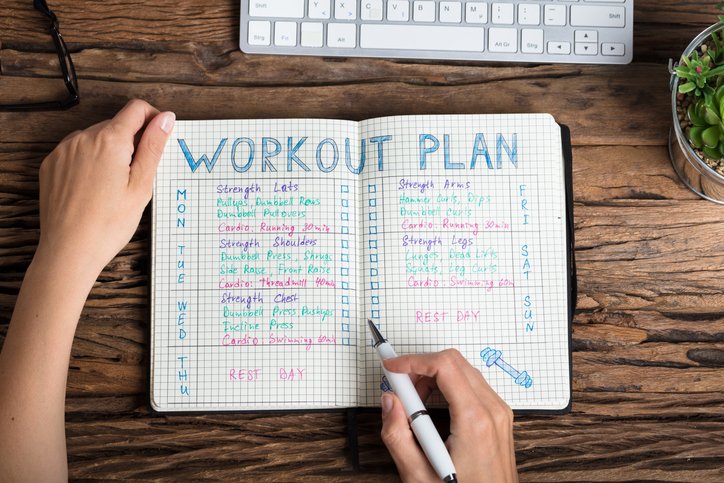 WORKOUT PLAN
MON
Strength Lats
Pullups, Dumbbell Rows
Dumbbell Pullovers
Cardio: Running 30min
TUE
Strength Shoulders
Dumbbell Press, Shrugs
Side Raise, Front Raise
Cardio: Threadmill 40min
WED
Strength Chest
Dumbbell Press Pushups
Incline Press
Cardio Swimming 60m
THU
REST DAY
FRI
Strength Arms
Hammer Curls, Dips
Dumbbell Curls
Cardio: Running 30min
SAT
Strength Legs
Lunges, Dead Lifts
Squats, Leg Curls
Cardio: Swimming 60m
SUN
REST DAY
Shift
Y
X
C
V
B
N
M
Strg
Fn
Alt
Alt Gr
Strg
Shift